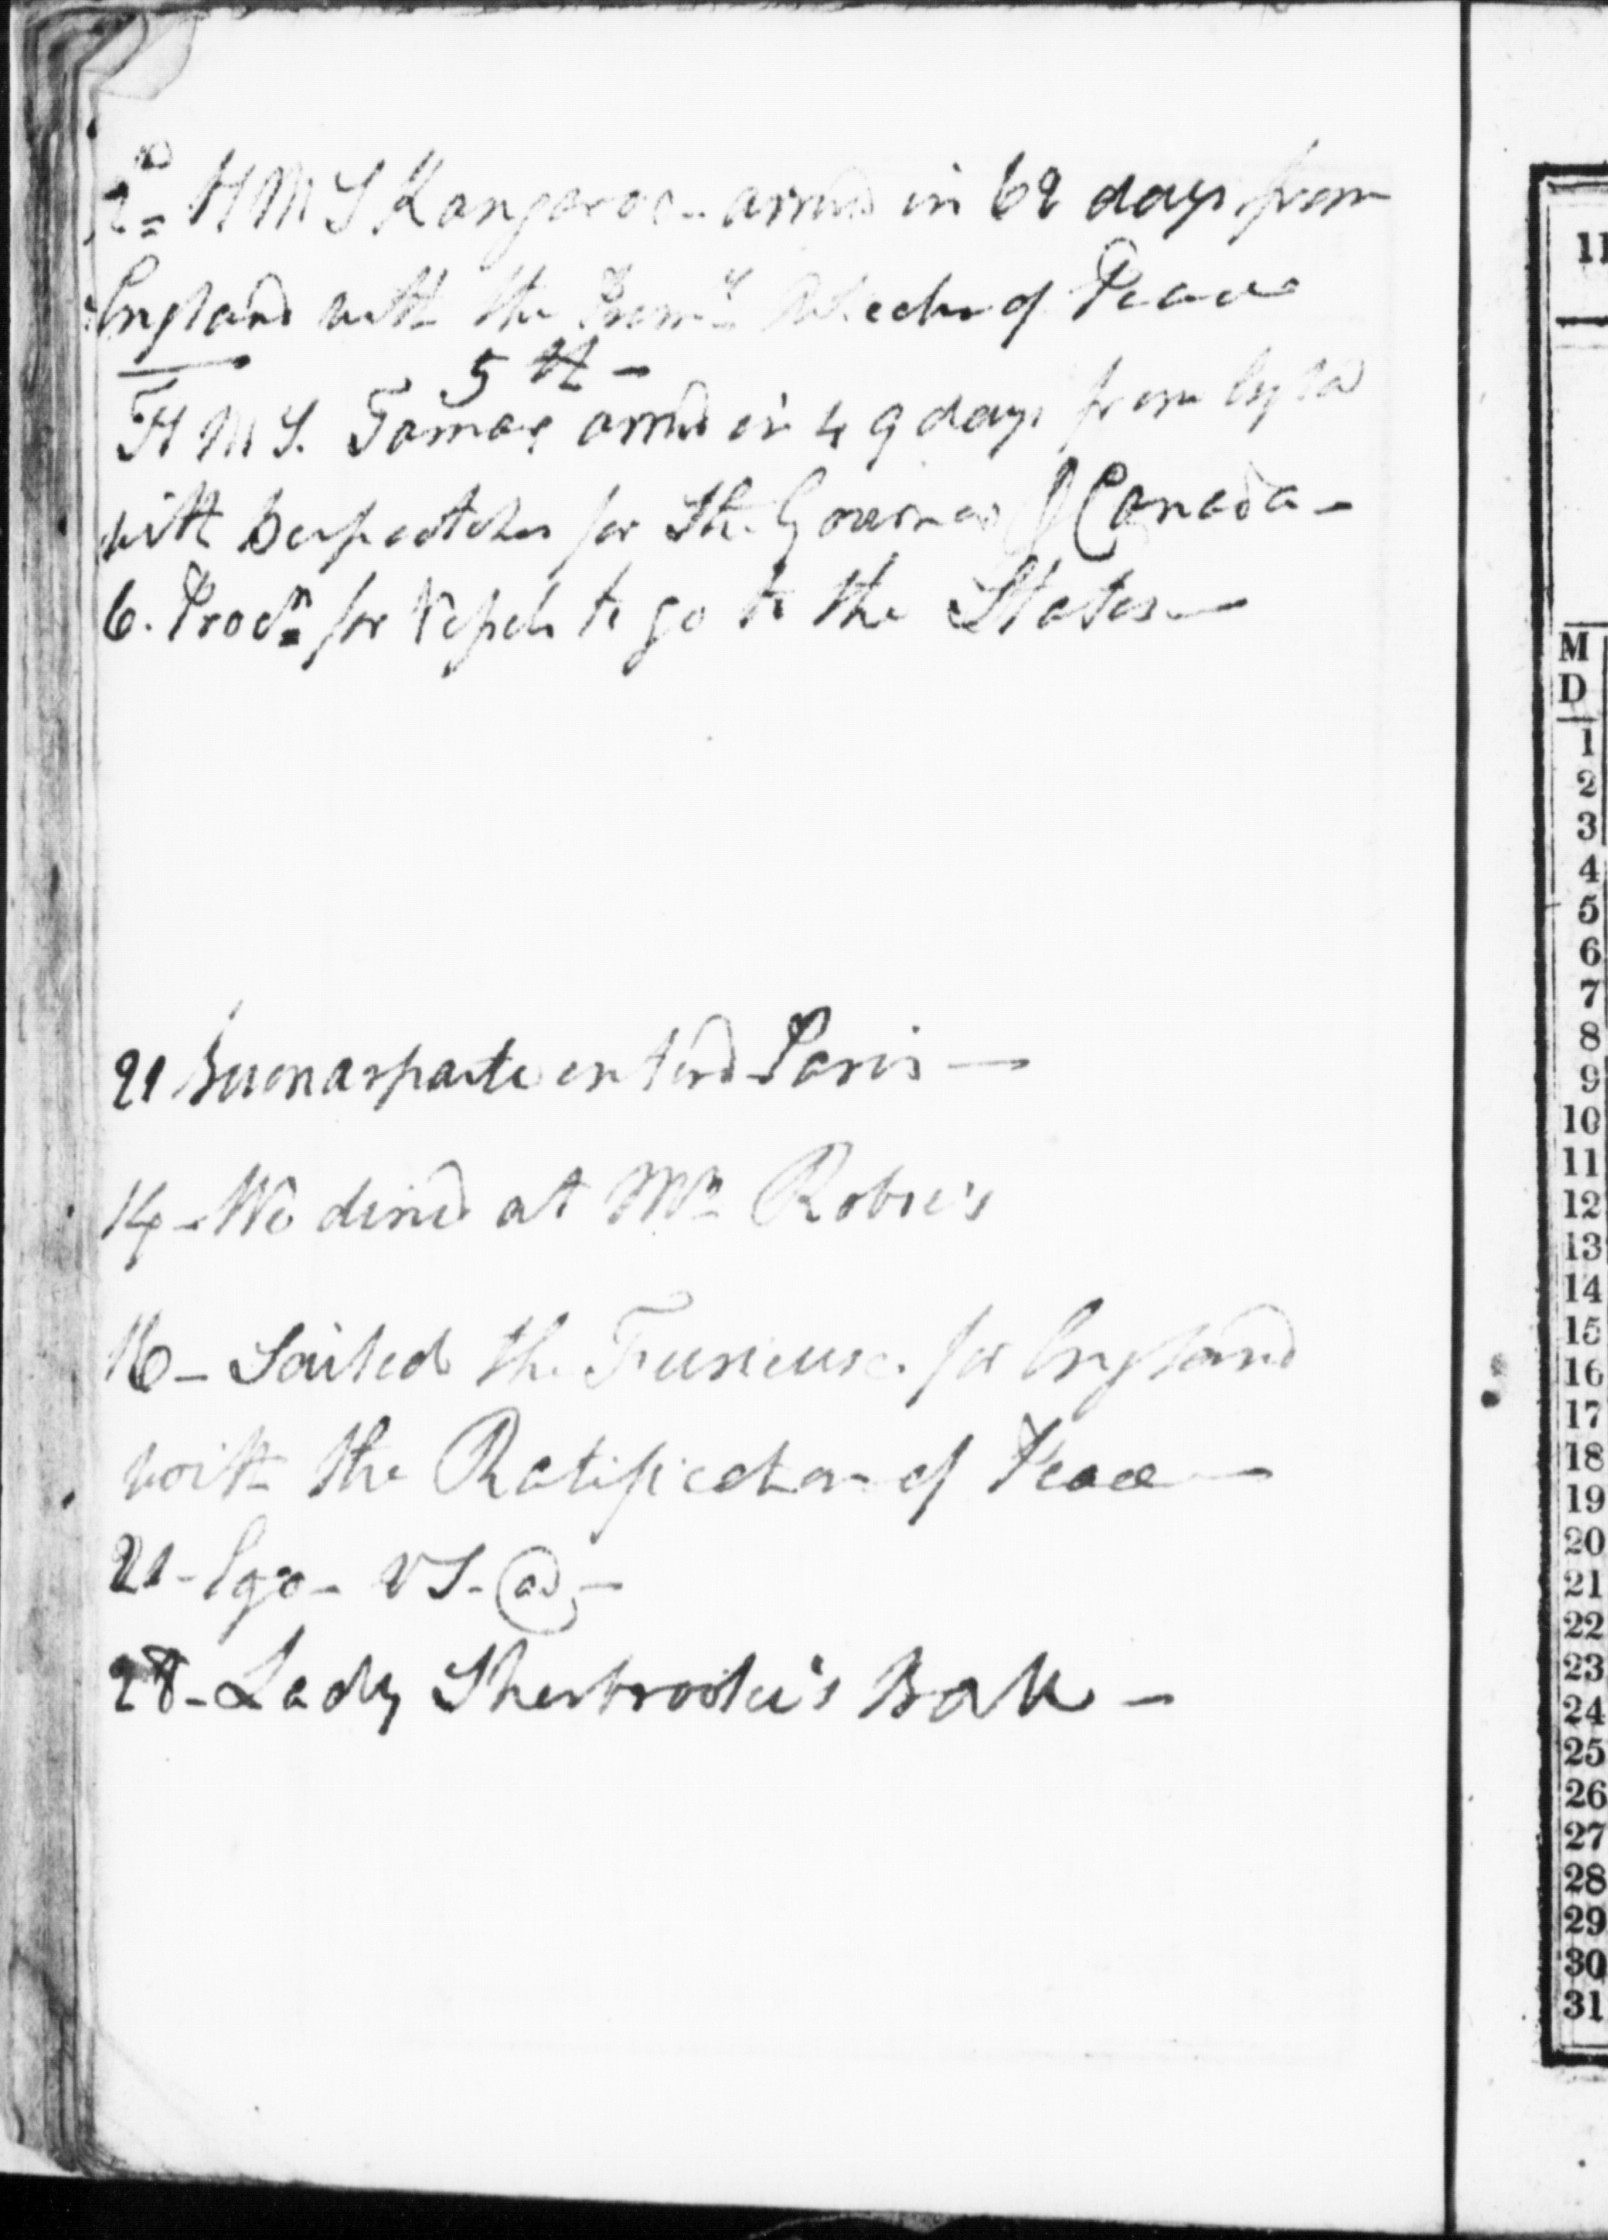 2d HMS Kangaroo - arrivd in 62 days from
England with the of Peace
5th -
HMS. Tamar arrivd in 49 days from Engld
with Despatches for the Governor of Canada -
6. Procn for Vessels to go to the States -
21 Buonarparte enterd Paris -
14 - We dined at Mr Robie's
16 - Sailed the Furieuse for England
with the Ratification of Peace -
21 - Ego - VS -
28 - Lady Sherbrooke's Ball -
11
M
D
1
2
3
4
5
6
7
8
9
10
11
12
13
14
15
16
17
18
19
20
21
22
23
24
25
26
27
28
29
30
31